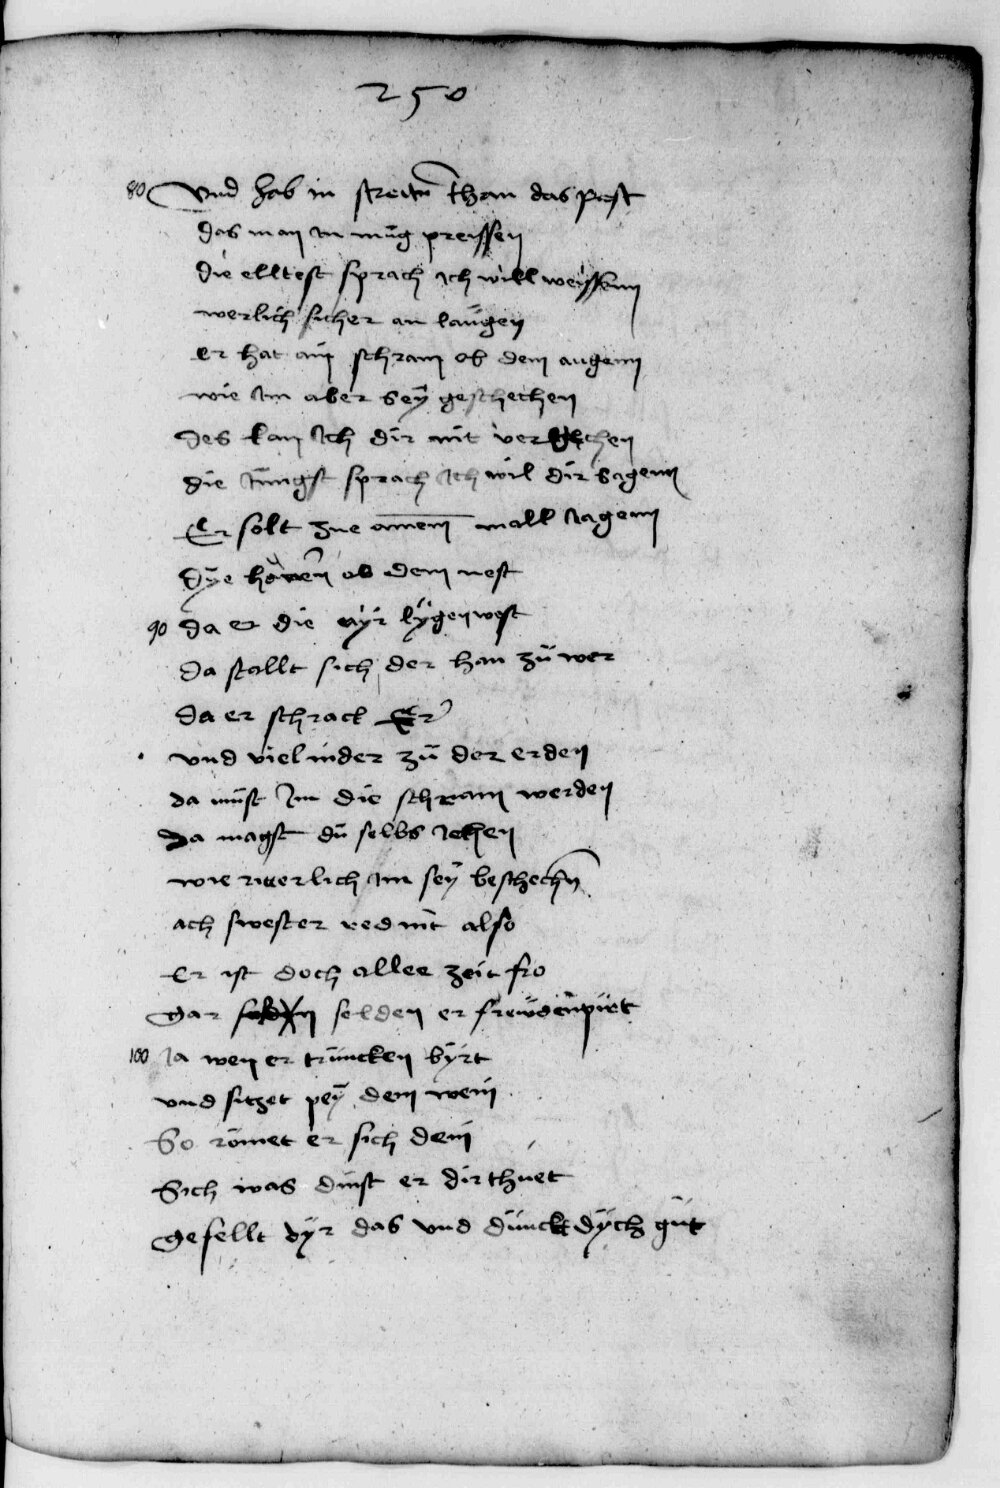 250
80 Vnd hab in streitn than das pest
das man in mug preissen
die elltest sprach Ich will weyssenn
werlich sicher an laugen
er hat ain schram ob dem augenn
wie Im aber sey geschechen
des kan Ich dir nit
die Jungst sprach Ich wil dir sagenn
Er solt zue ainem mall Jagenn
dye hennen ob dem nest
90 da er die ayr lygen west
da stallt sich der han zu wer
da er schrack Er
vnd viel nider zu der erden
da must Im die schram werden
Da magst du selbs Jehen
wie ritterlich Im sey beschechn
ach swester red nit also
Er ist doch allee zeit fro
gar selden er frewden piret
100 Ja wen er truncken byrt
vnd sitzet pey dem wein
So römet er sich dein
Sich was dinst er dir thuet
gefellt dyr das vnd dunckt dych gut